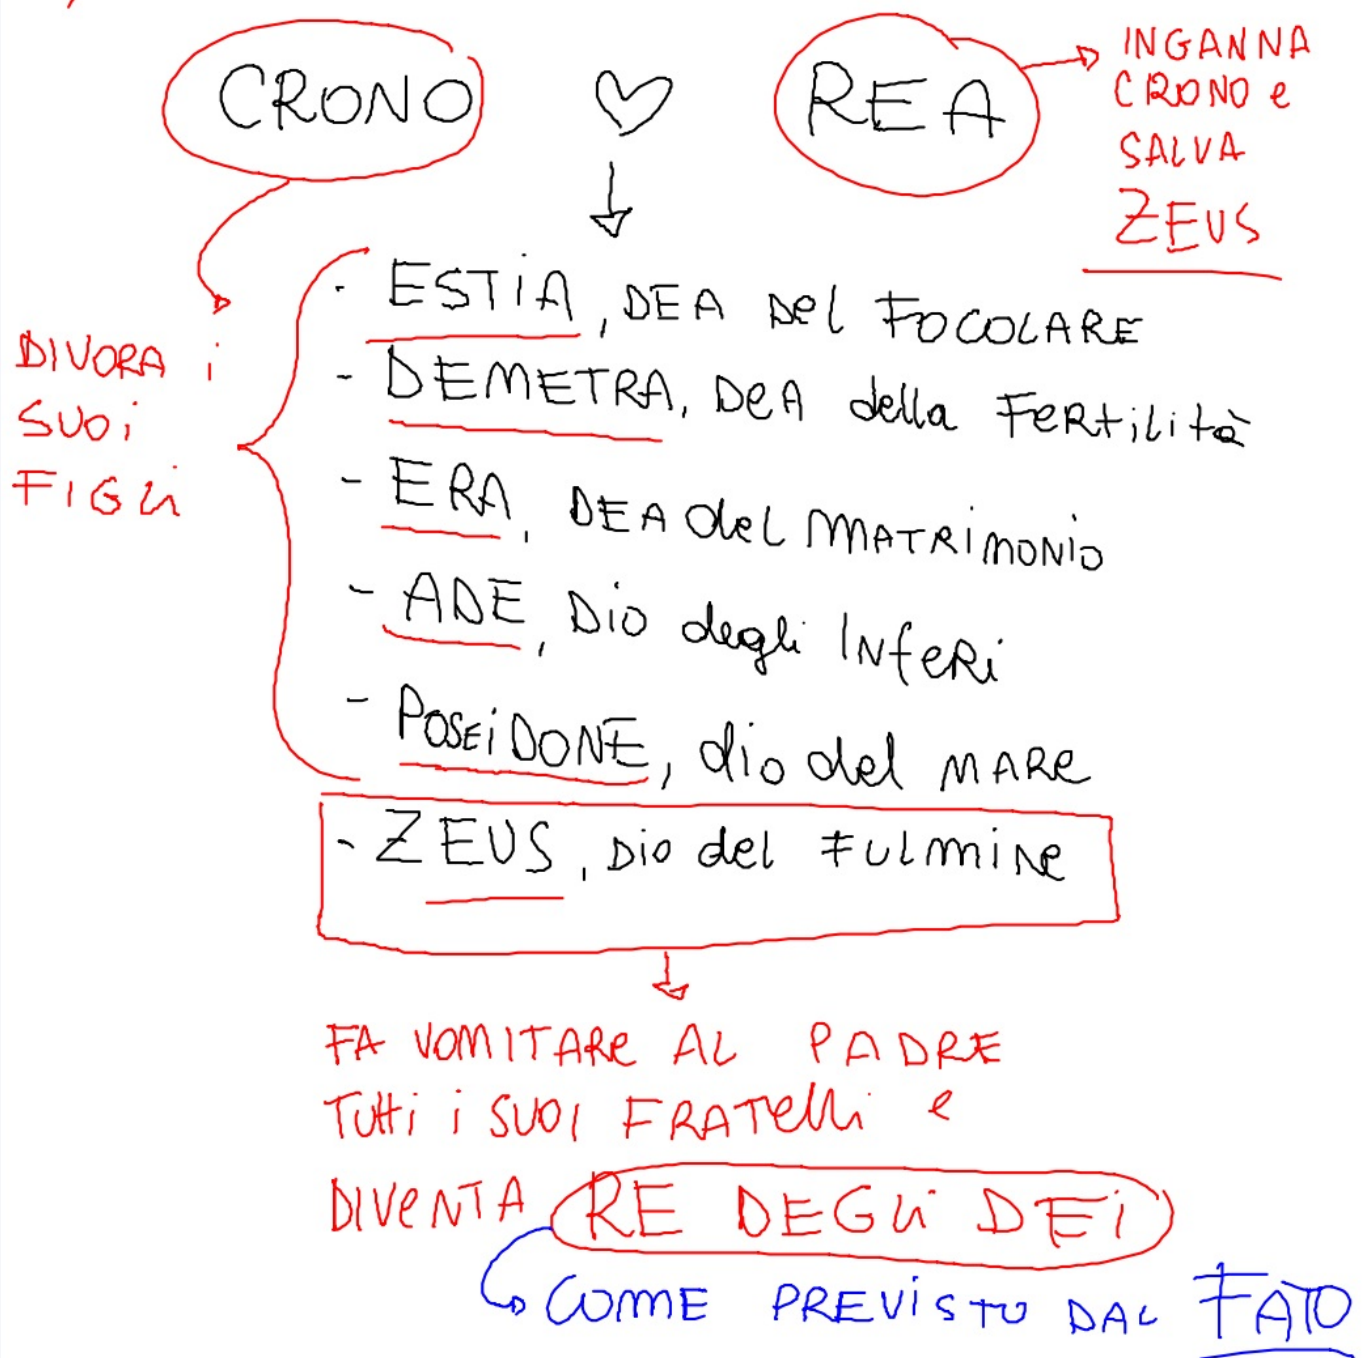 CRONO ♡ REA
INGANNA
CRONO e
SALVA
ZEUS
- ESTIA, DEA Del FOCOLARE
- DEMETRA, DeA della FeRtilità
- ERA, DEA del MATRIMONIO
- ADE, DIO degli INfeRi
- POSEIDONE, dio del MARe
- ZEUS, DIO del FulmiNe
DIVORA i
SUOi
FIGLi
FA VOMITARe AL PADRE
TUtti i SUOI FRATelli e
DIVeNTA RE DEGLi DEi
COME PREVISTO DAL FATO